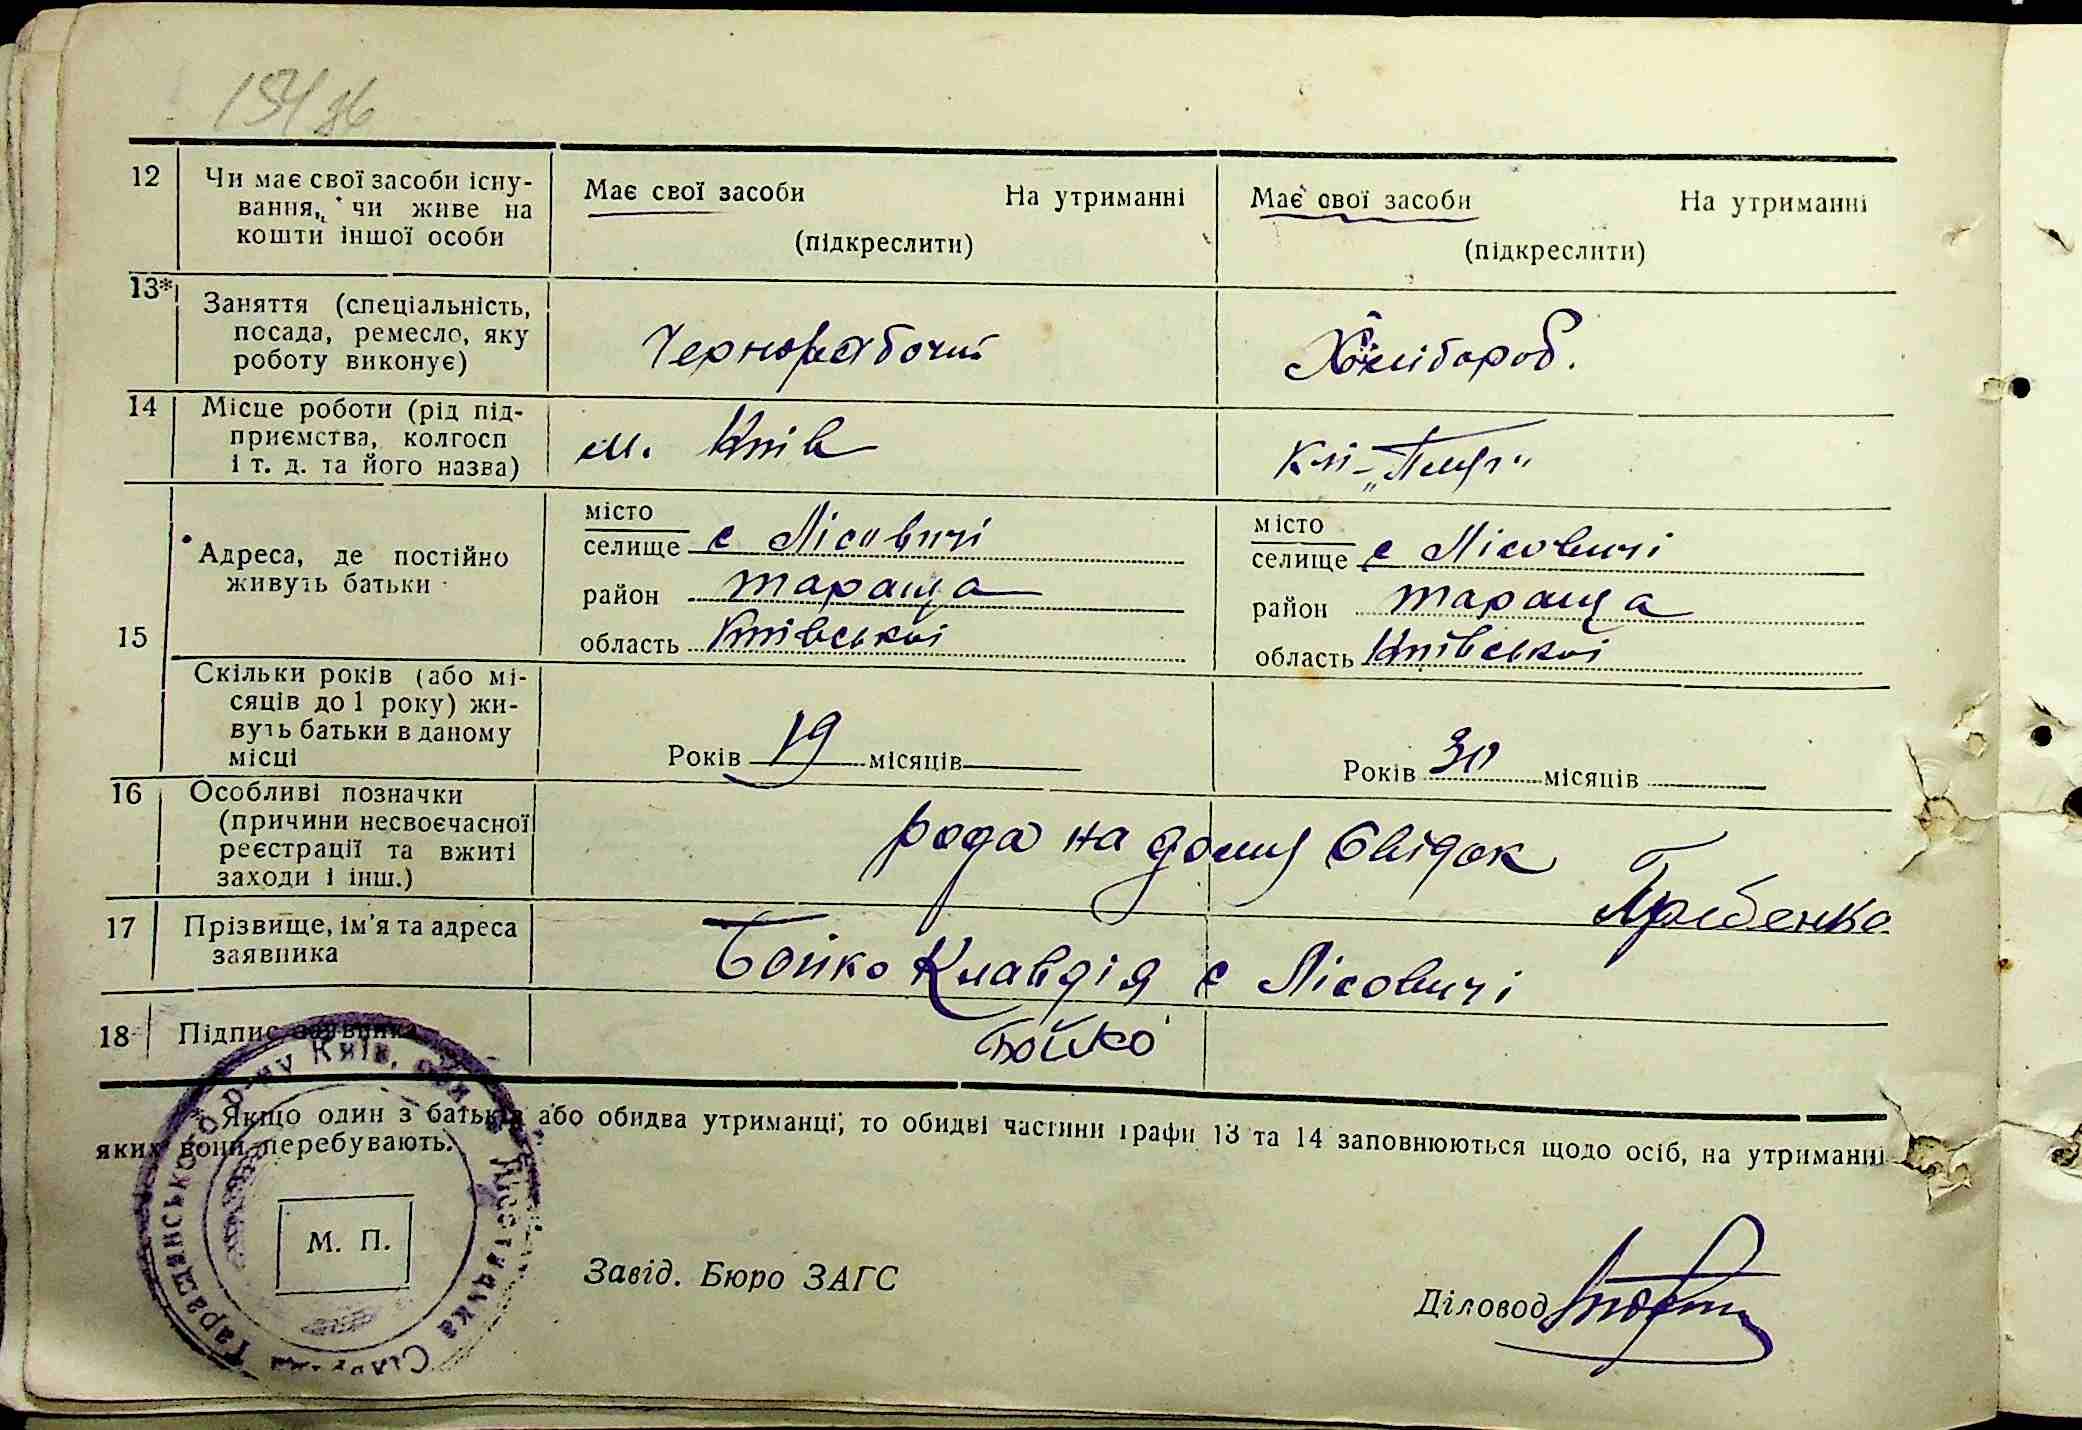 154 зб
12 Чи має свої засоби існу-
вання, чи живе на
кошти іншої особи
Має свої засоби На утриманні
(підкреслити)
Має свої засоби На утриманні
(підкреслити)
13* Заняття (спеціальність,
посада, ремесло, яку
роботу виконує)
Чернорабочий
Хлібороб.
14 Місце роботи (рід під-
приємства, колгосп
і т. д. та його назва)
м. Київ
К-п „Плуг"
15 Адреса, де постійно
живуть батьки
місто
селище с Лісовичі
район тараща
область Київської
місто
селище с Лісовичі
район тараща
область Київської
Скільки років (або мі-
сяців до 1 року) жи-
вуть батьки в даному
місці
Років 19 місяців
Років 30 місяців
16 Особливі позначки
(причини несвоєчасної
реєстрації та вжиті
заходи і інш.)
рода на дому Свідок
Гребенко
17 Прізвище, ім'я та адреса
заявника
Бойко Клавдія с Лісовичі
18 Підпис заявника
Бойко
Якщо один з батьків або обидва утриманці, то обидві частини графи 13 та 14 заповнюються щодо осіб, на утриманні
яких вони перебувають.
М. П.
Таращанського р-ну Київ. обл.
Завід. Бюро ЗАГС
Діловод